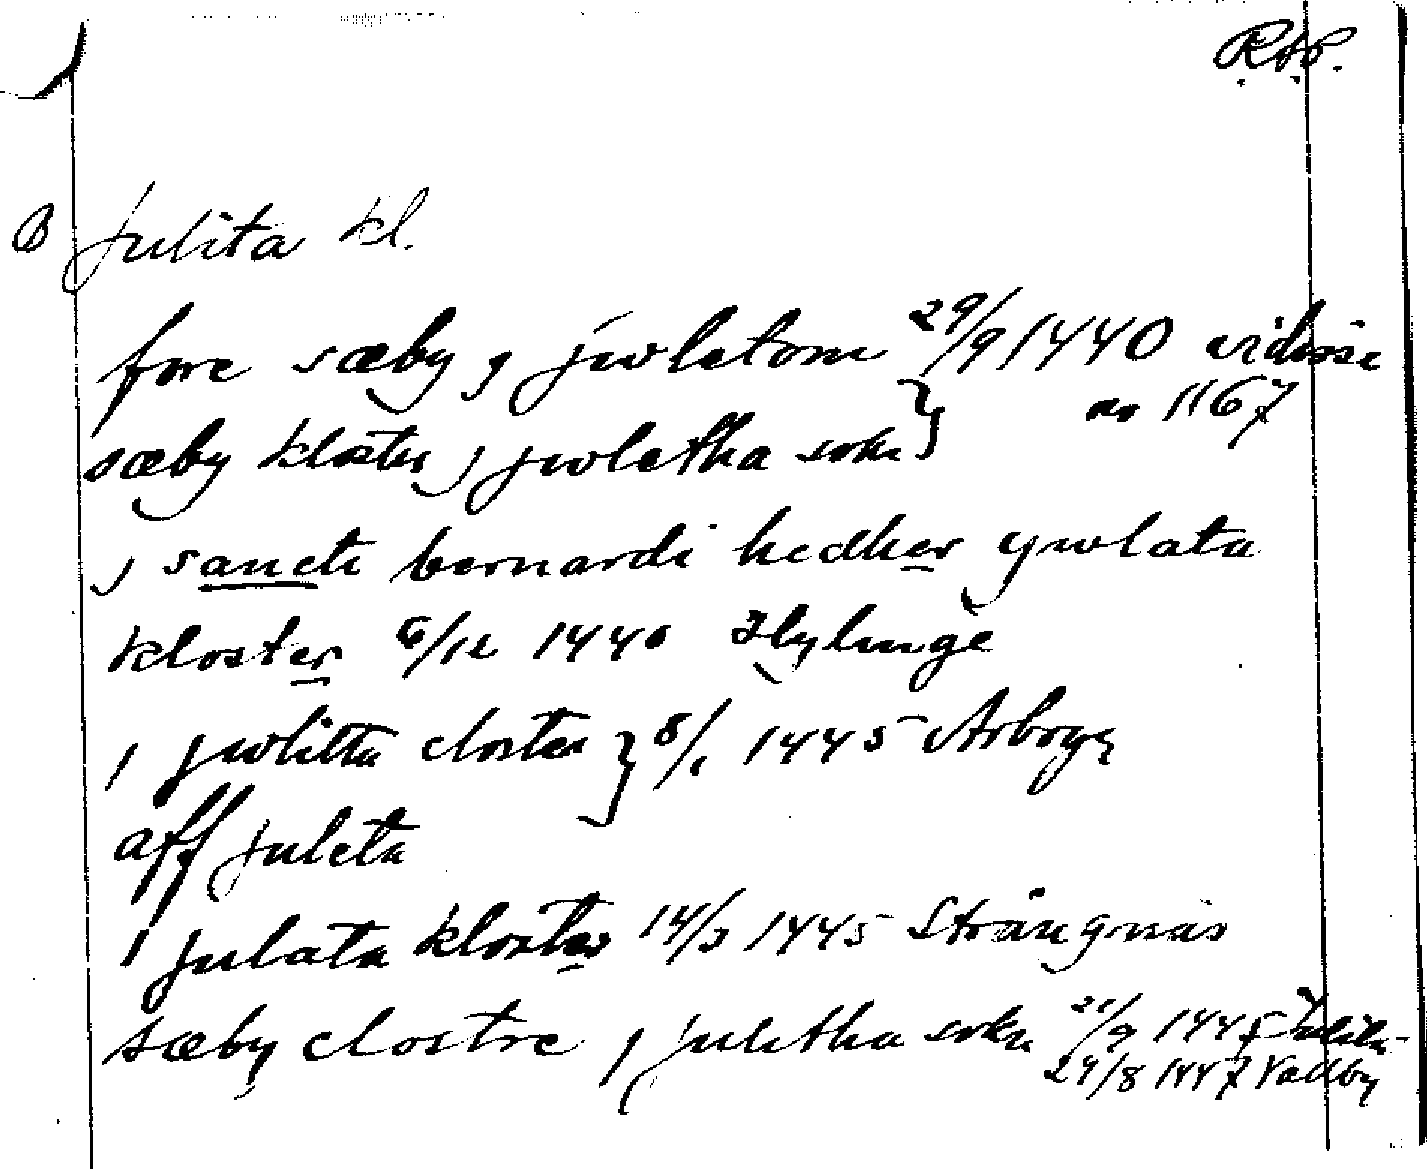 R.A.P.
B Julita kl.
fore sæby j jwletom 29/9 1440 vidisse
sæby kloster j jwletha sokn } no 1167
j sancti bernardi hedher ywlata
kloster 6/12 1440
j jwlitta closter } 8/1 1445 Arboga
aff juleta
j julata kloster 14/3 1445 Strängnäs
sæby clostre j julitha sokn 21/9 1445 Julita
24/8 1447 Vallby